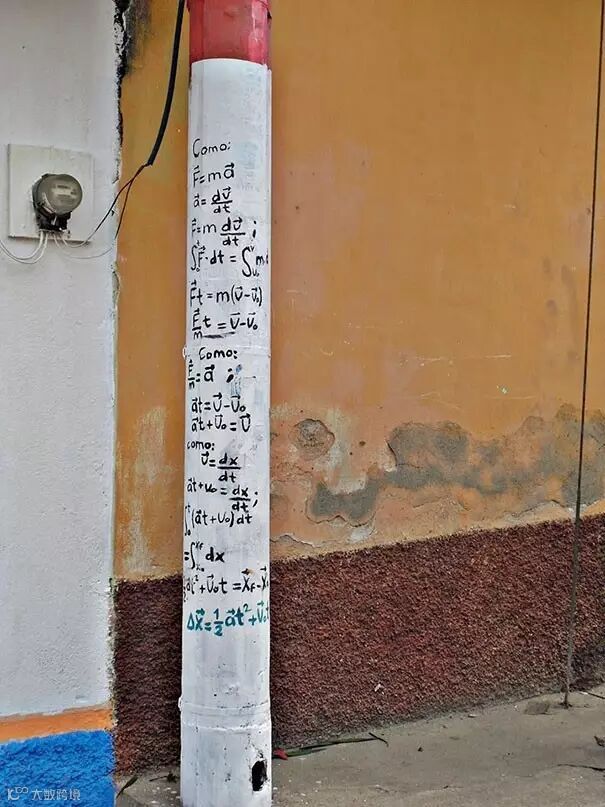 Como:
F⃗=ma⃗
a⃗=dv⃗/dt
F⃗=m dv⃗/dt;
∫₀ᵗF⃗·dt=∫ᵥ₀ᵛm
F⃗t=m(v⃗-v⃗₀)
F⃗/m t=v⃗-v⃗₀
Como:
F⃗/m=a⃗;
a⃗t=v⃗-v⃗₀
a⃗t+v⃗₀=v⃗
como:
v⃗=dx/dt
a⃗t+v₀=dx/dt;
∫₀ᵗ(a⃗t+v₀)dt
=∫dx
t²+v⃗₀t=x⃗F-x⃗
Δx⃗=½a⃗t²+v⃗₀t
大数跨境